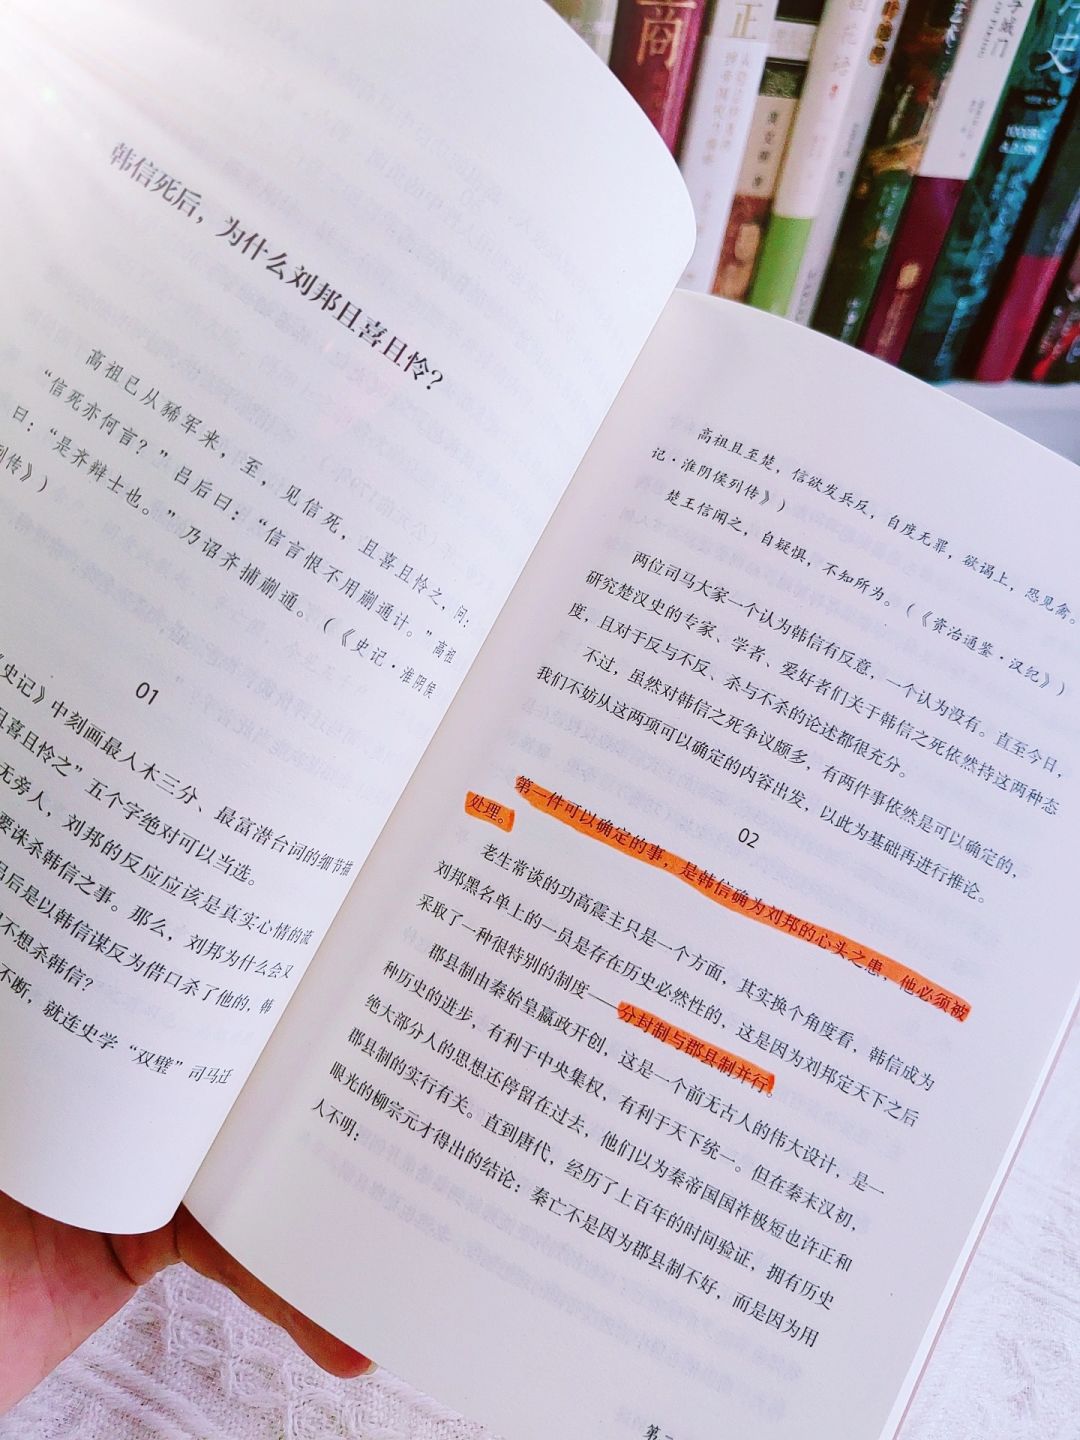 韩信死后，为什么刘邦且喜且怜？
高祖已从豨军来，至，见信死，且喜且怜之，问：
“信死亦何言？”吕后曰：“信言恨不用蒯通计。”高祖
曰：“是齐辩士也。”乃诏齐捕蒯通。（《史记·淮阴侯
列传》）
01
《史记》中刻画最入木三分、最富潜台词的细节描
且喜且怜之”五个字绝对可以当选。
无旁人，刘邦的反应应该是真实心情的流
要诛杀韩信之事。那么，刘邦为什么会又
吕后是以韩信谋反为借口杀了他的，韩
不想杀韩信？
不断，就连史学“双璧”司马迁
高祖且至楚，信欲发兵反，自度无罪，欲谒上，恐见禽。
记·淮阴侯列传》）
楚王信闻之，自疑惧，不知所为。（《资治通鉴·汉纪》）
两位司马大家一个认为韩信有反意，一个认为没有。直至今日，
研究楚汉史的专家、学者、爱好者们关于韩信之死依然持这两种态
度，且对于反与不反、杀与不杀的论述都很充分。
不过，虽然对韩信之死争议颇多，有两件事依然是可以确定的，
我们不妨从这两项可以确定的内容出发，以此为基础再进行推论。
02
第一件可以确定的事，是韩信确为刘邦的心头之患，他必须被
处理。
老生常谈的功高震主只是一个方面，其实换个角度看，韩信成为
刘邦黑名单上的一员是存在历史必然性的，这是因为刘邦定天下之后
采取了一种很特别的制度——分封制与郡县制并行。
郡县制由秦始皇嬴政开创，这是一个前无古人的伟大设计，是一
种历史的进步，有利于中央集权，有利于天下统一。但在秦末汉初，
绝大部分人的思想还停留在过去，他们以为秦帝国国祚极短也许正和
郡县制的实行有关。直到唐代，经历了上百年的时间验证，拥有历史
眼光的柳宗元才得出的结论：秦亡不是因为郡县制不好，而是因为用
人不明：
第二
商
正
史